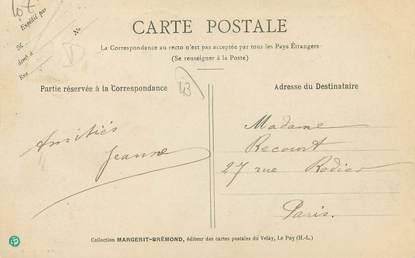 10€
Expédié par
M
dont d
Rue
N°
CARTE POSTALE
La Correspondance au recto n'est pas acceptée par tous les Pays Étrangers
(Se renseigner à la Poste)
Partie réservée à la Correspondance
43
Amitiés
Jeanne
Adresse du Destinataire
Madame
Recourt
27 rue Rodier
Paris.
Collection MARGERIT-BRÉMOND, éditeur des cartes postales du Velay, Le Puy (H.-L.)